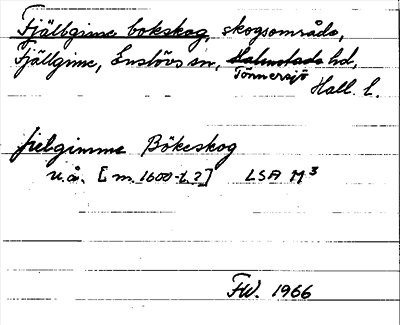 Fjällginne bokskog, skogsområde,
Fjällginne, Enslövs sn, Halmstads hd,
Tönnersjö
Hall. l.
fielgimme Bökeskog
u.å. [m. 1600-t.?] LSA M³
FW. 1966